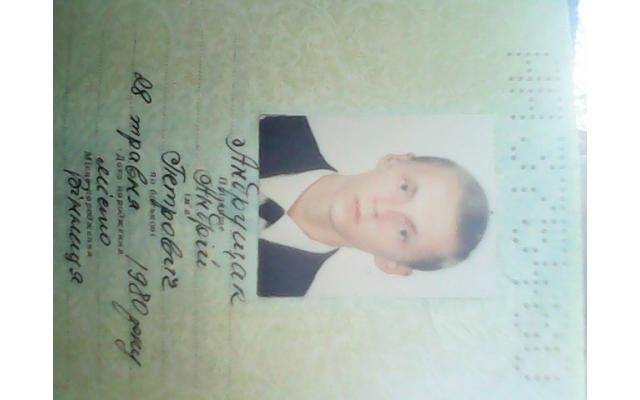 Андрущак
Прізвище
Андрій
Ім'я
Петрович
по батькові
28 травня 1980 року
Дата народження
місто
Місце народження
Вінниця